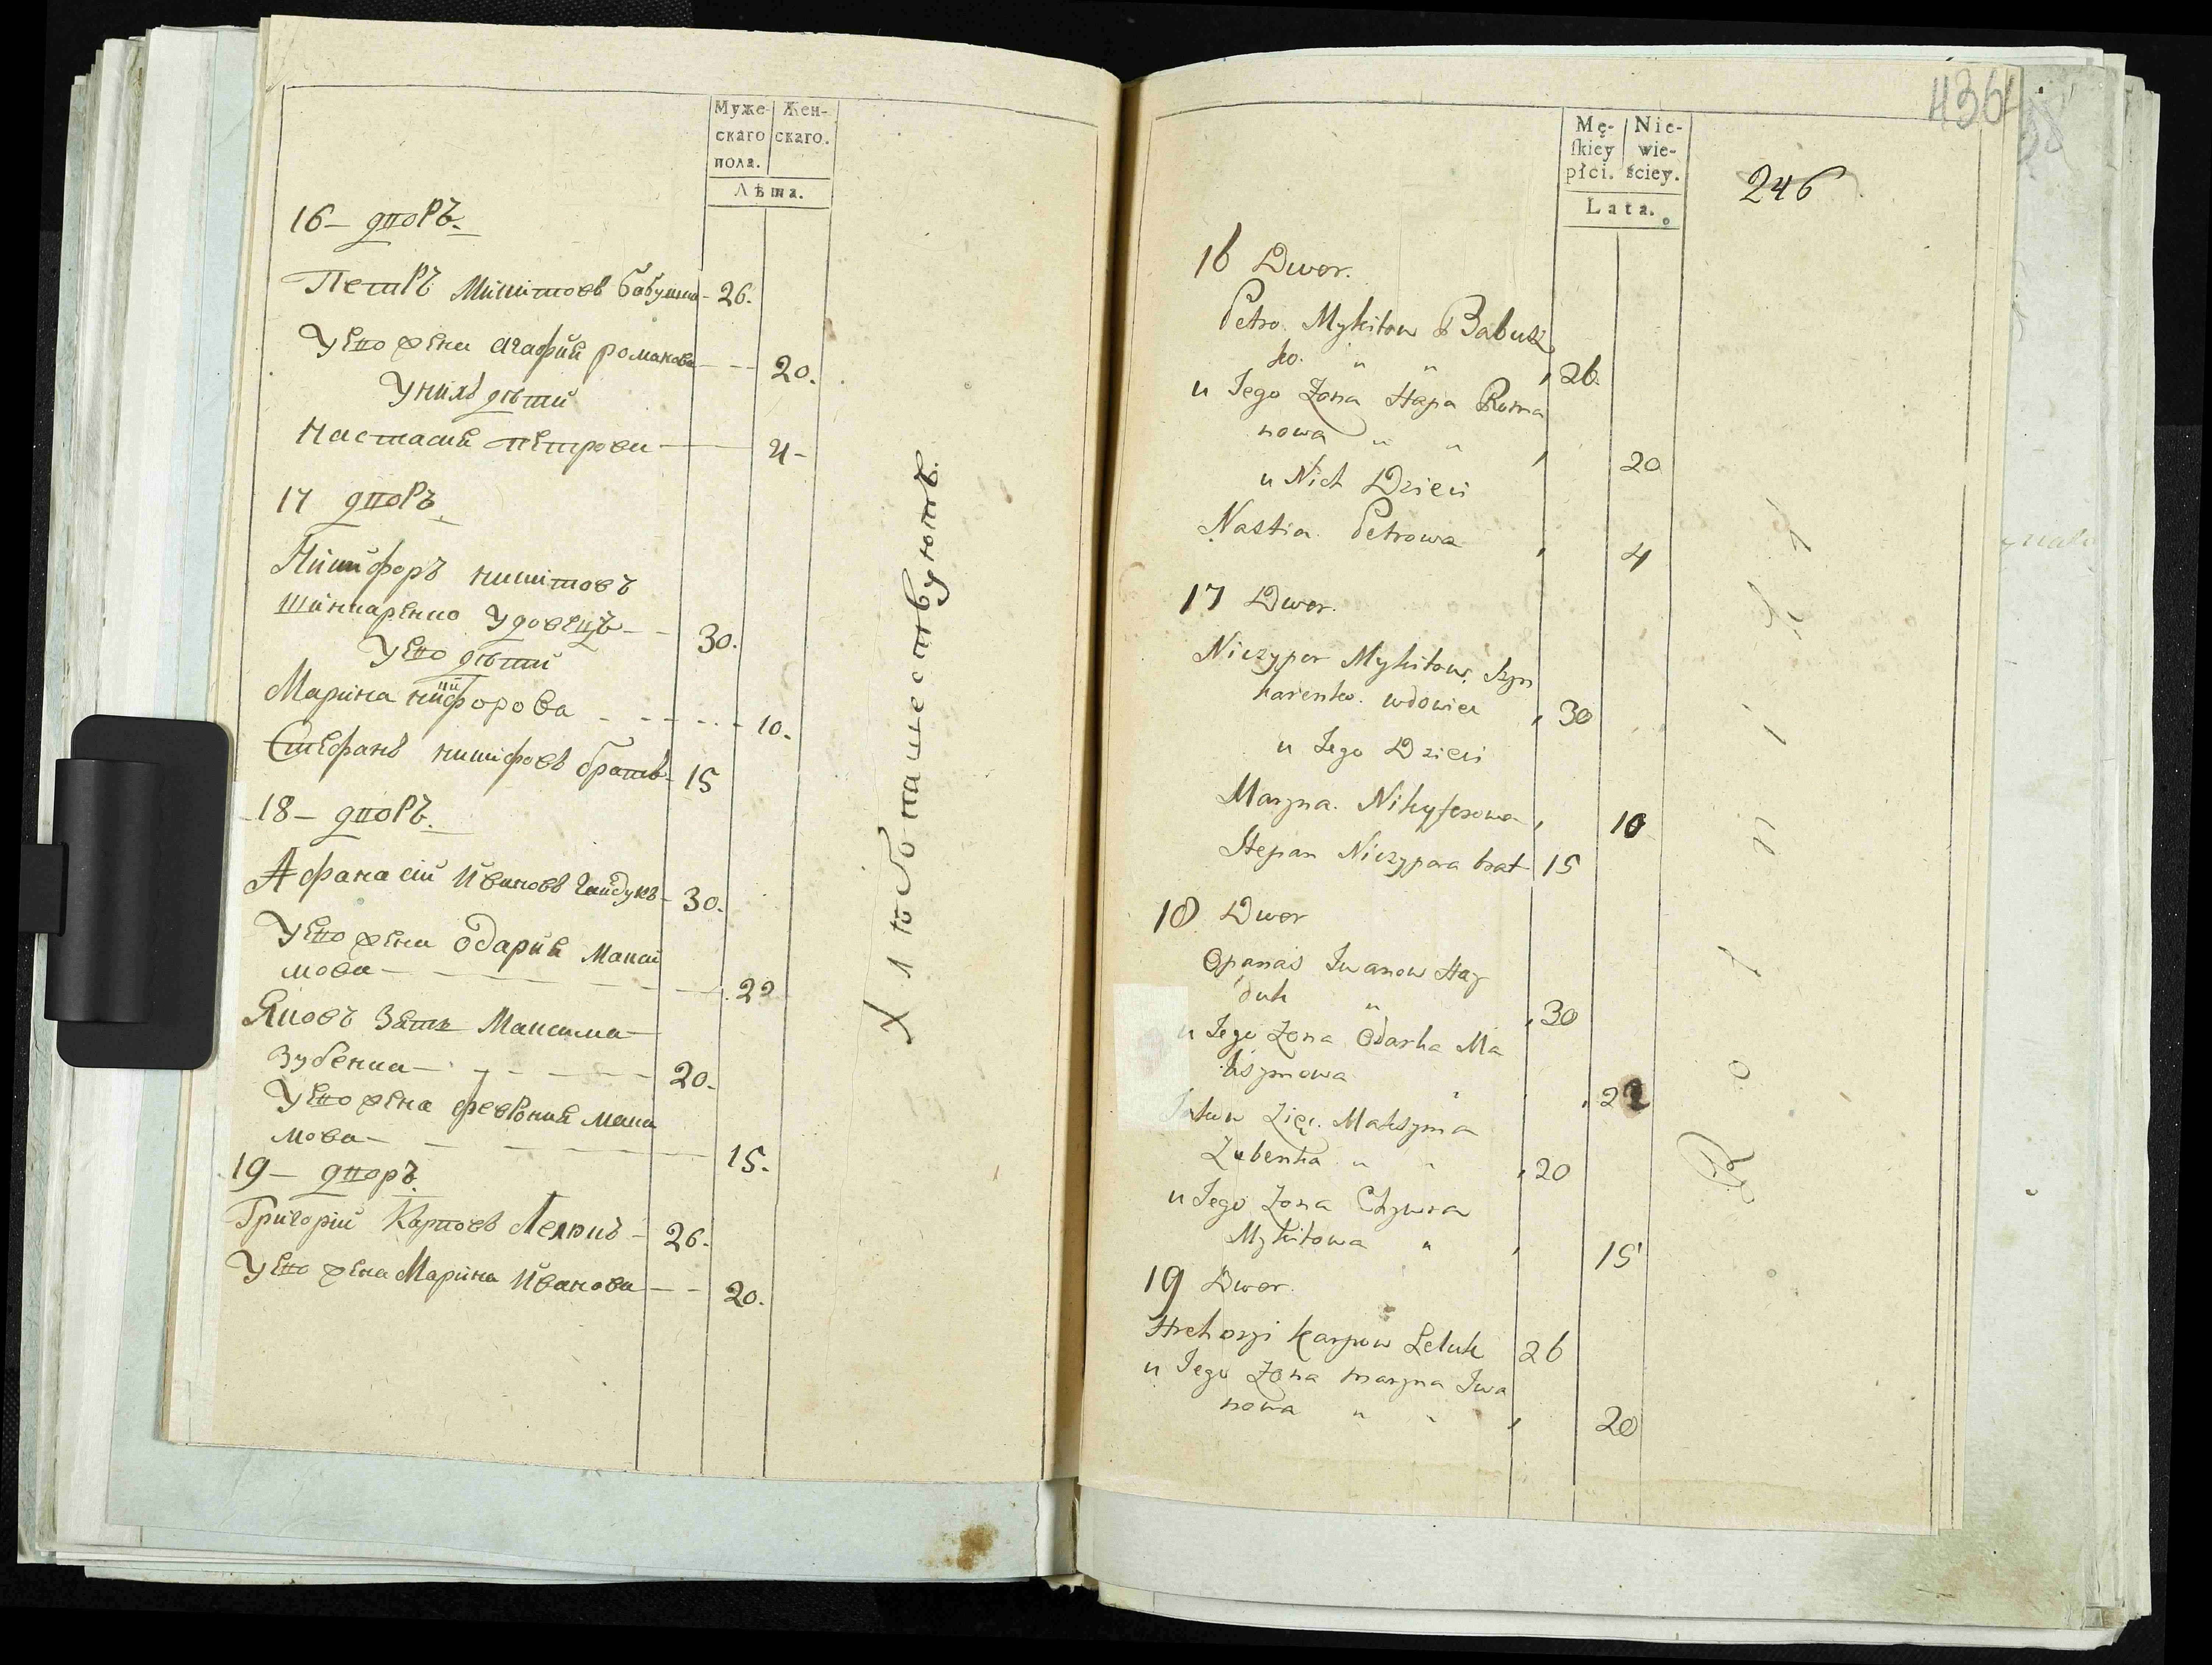 Муже-
скаго
пола.
Жен-
скаго.
Лѣта.
16 – дворъ.
Петръ Микитовъ Бабушка – 26.
У Его жена Агафия романова – – 20.
У них дѣти
Настасия петрова – 4 –
17 дворъ
Никифоръ никитовъ
Шинкаренко удовецъ – – 30.
У Его дѣти
Марина никифорова – – – – – 10.
Стефанъ никифоовъ братъ – 15
18 – дворъ.
Афанасий Ивановъ Гайдукъ – 30.
У Его жена Одария Макси
мова – – – – – – 22
Яковъ Зять Максима
Зубенка – – – – – 20.
У Его жена феврония мики
мова – – – – 15.
19 – дворъ.
Григорий Карповъ Лелюкъ – 26.
У Его жена Марина Иванова – – 20.
Mę-
skiey
płci.
Nie-
wie-
ściey.
Lata.
4364
246
16 Dwor.
Petro Mykitow Babusz
ko. " " , 26.
u Jego Żona Hapa Roma
nowa " " , 20
u Nich Dzieci
Nastia Petrowa , 4
17 Dwor.
Niczypor Mykitow Szyn
karenko wdowiec , 30
u Jego Dzieci
Maryna Nikyforowa , 10
Stepan Niczypora brat 15
18 Dwor
Opanas Iwanow Hay
duk " , 30
u Jego Żona Odarka Ma
ksymowa , 22
Zięć Maksyma
Zubenka " " , 20
u Jego Żona Chywra
Mykitowa " , 15
19 Dwor.
Hrehorji Karpow Leluk 26
u Jego Żona Maryna Iwa
nowa " " , 20